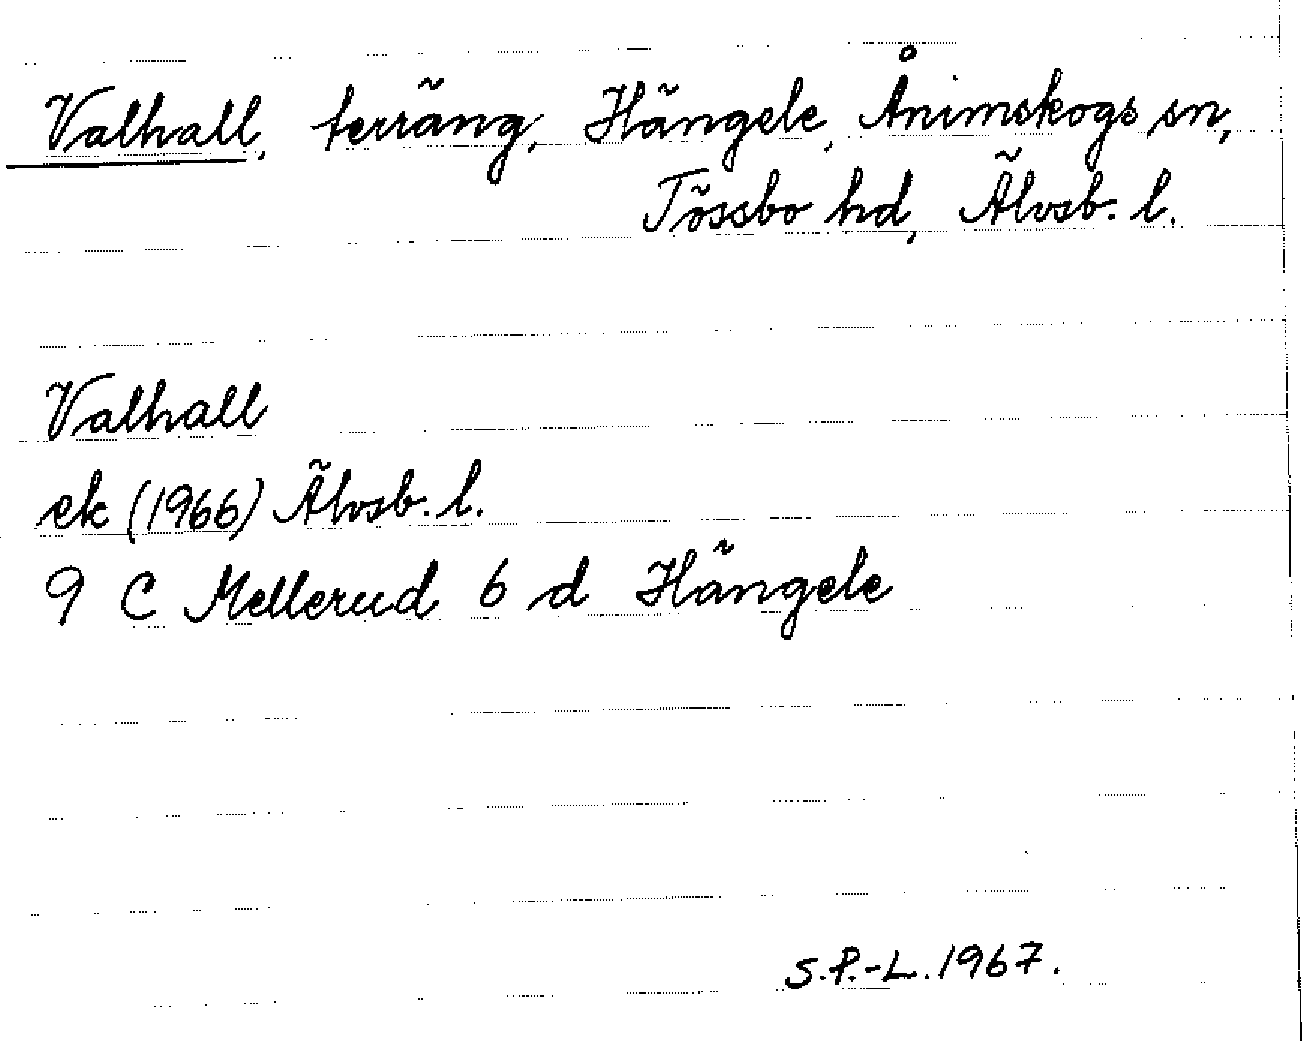 Valhall, terräng, Hängele, Ånimskogs sn,
Tössbo hd, Älvsb. l.
Valhall
ek (1966) Älvsb. l.
9 C Mellerud 6 d Hängele
S.P.-L. 1967.